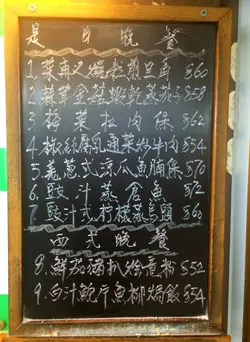 是日晚餐
1.菜甫又燒粒煎豆角 $60
2.蒜茸金菇蝦乾蒸茄子 $58
3.梅菜扣肉保 $62
4.椒絲腐乳通菜炒牛肉 $54
5.羗蔥式涼瓜魚腩保 $70
6.豉汁蒸倉魚 $72
7.豉汁式 蒸烏頭 $60
西式晚餐
8.鮮茄豬扒炒意粉 $52
9.白汁鮑片魚柳焗飯 $54